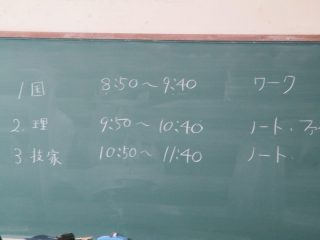 1 国 8:50〜9:40 ワーク
2. 理 9:50〜10:40 ノート・ファ
3 技家 10:50〜11:40 ノート.